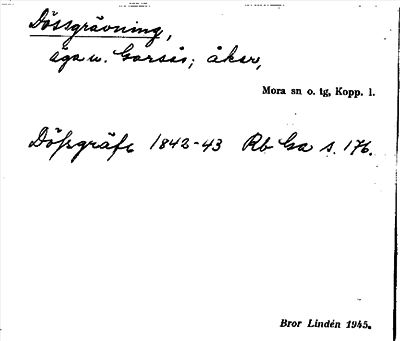 Dössgrävning,
äga u. Garsås; åker,
Mora sn o. tg, Kopp. l.
Döfsgräfn 1842-43 Rb Ga s. 176.
Bror Lindén 1945.